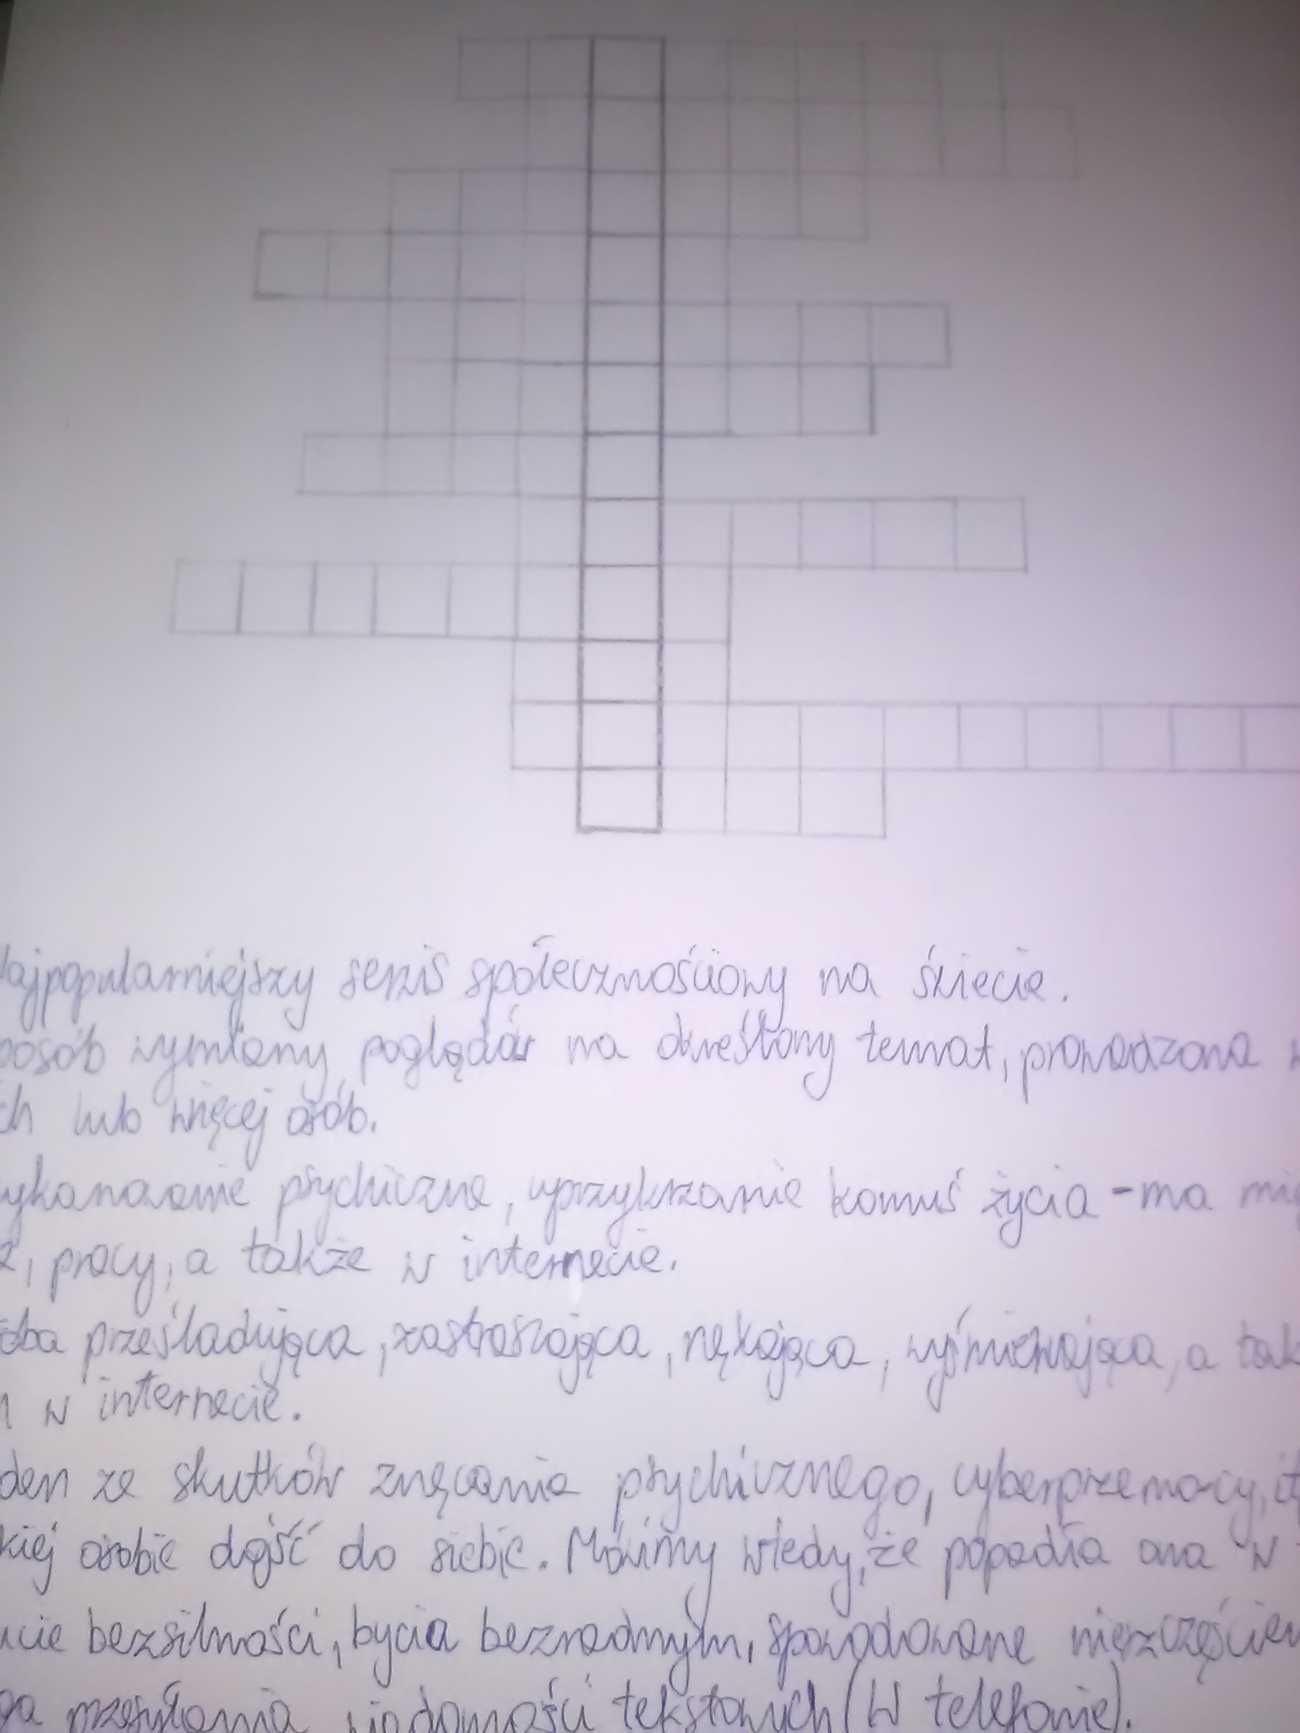 ajpopularniejszy serwis społecznościowy na świecie.
posób wymiany poglądów na określony temat, prowadzona w
ch lub więcej osób.
ykonawanie psychiczne, uprzykrzanie komuś życia - ma mię
, pracy, a także w internecie.
oba prześladująca, zastraszająca, nękająca, wyśmiewająca, a tak
w internecie.
den ze skutków znęcania psychicznego, cyberprzemocy, it
kiej osobie dojść do siebie. Mówimy wtedy, że popadła ona w
ucie bezsilności, bycia bezradnym, spowodowane nieszczęściem
ga przesyłania wiadomości tekstowych (w telefonie).